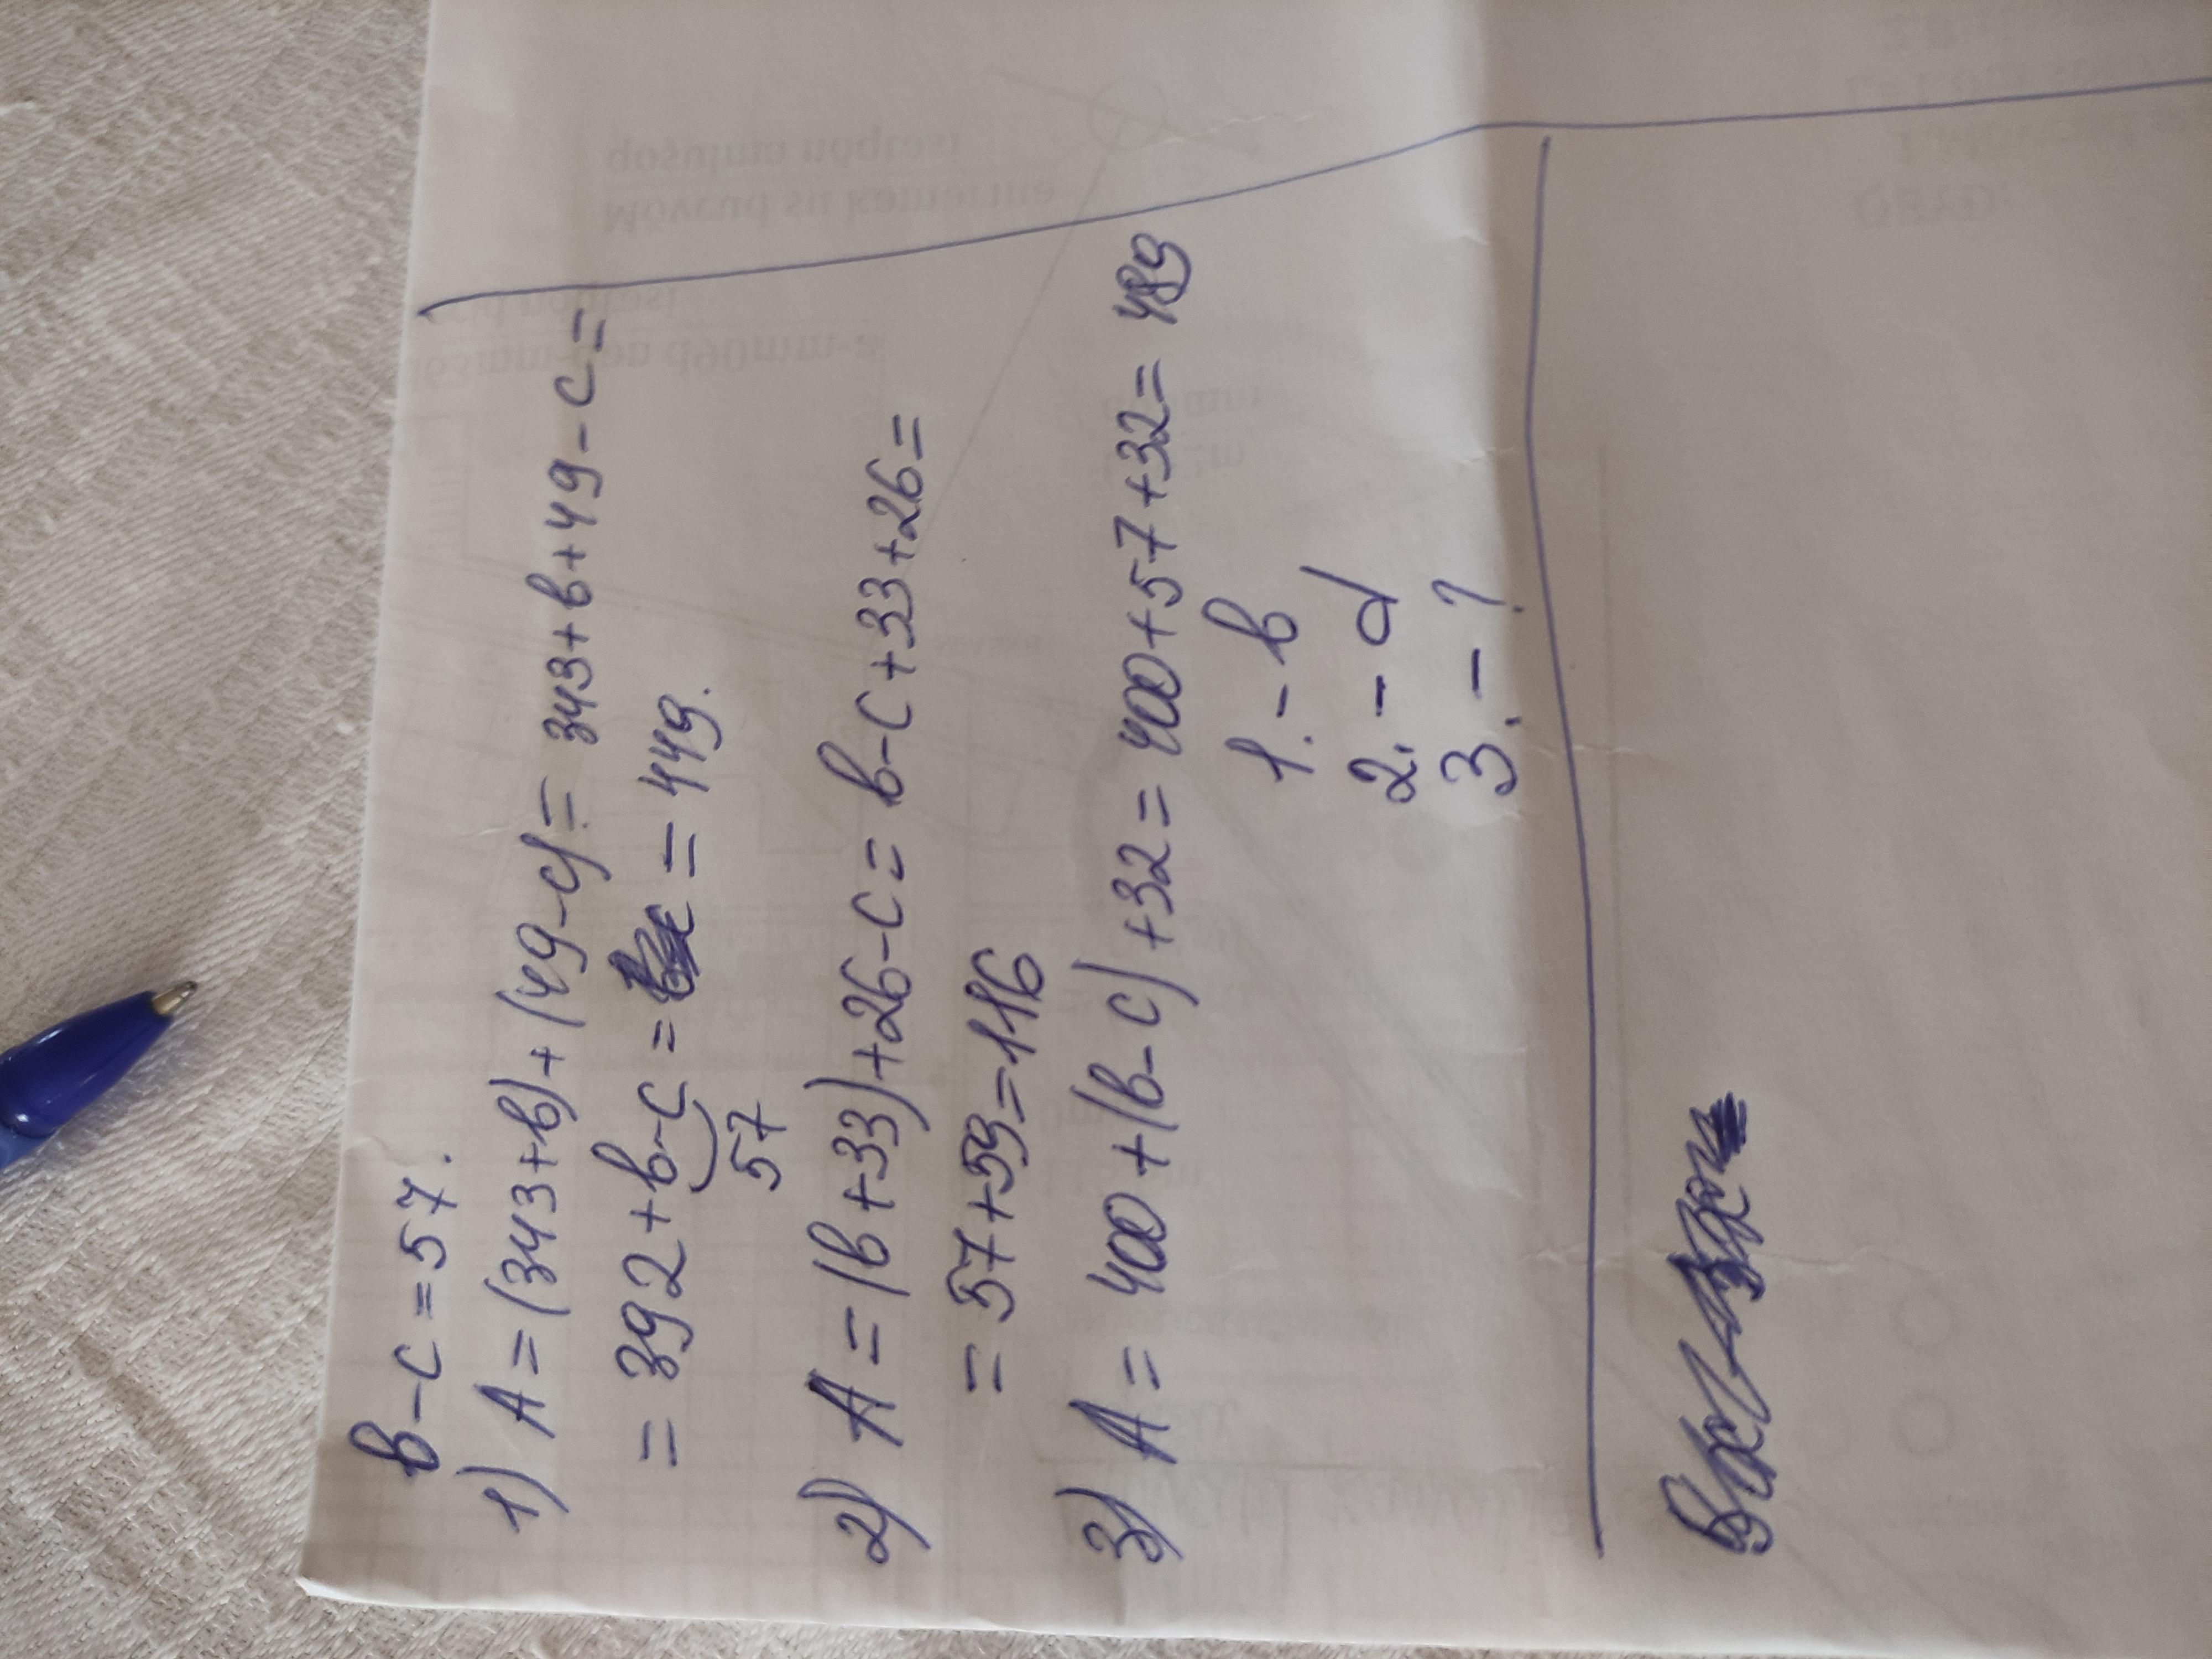 в-с=57.
1) A=(343+в)+(49-с)=343+в+49-с=
=392+в-с= =449.
57
2) A=(в+33)+26-с=в-с+33+26=
=57+59=116
3) A=400+(в-с)+32=400+57+32=489
1.-в
2.-d
3.-?